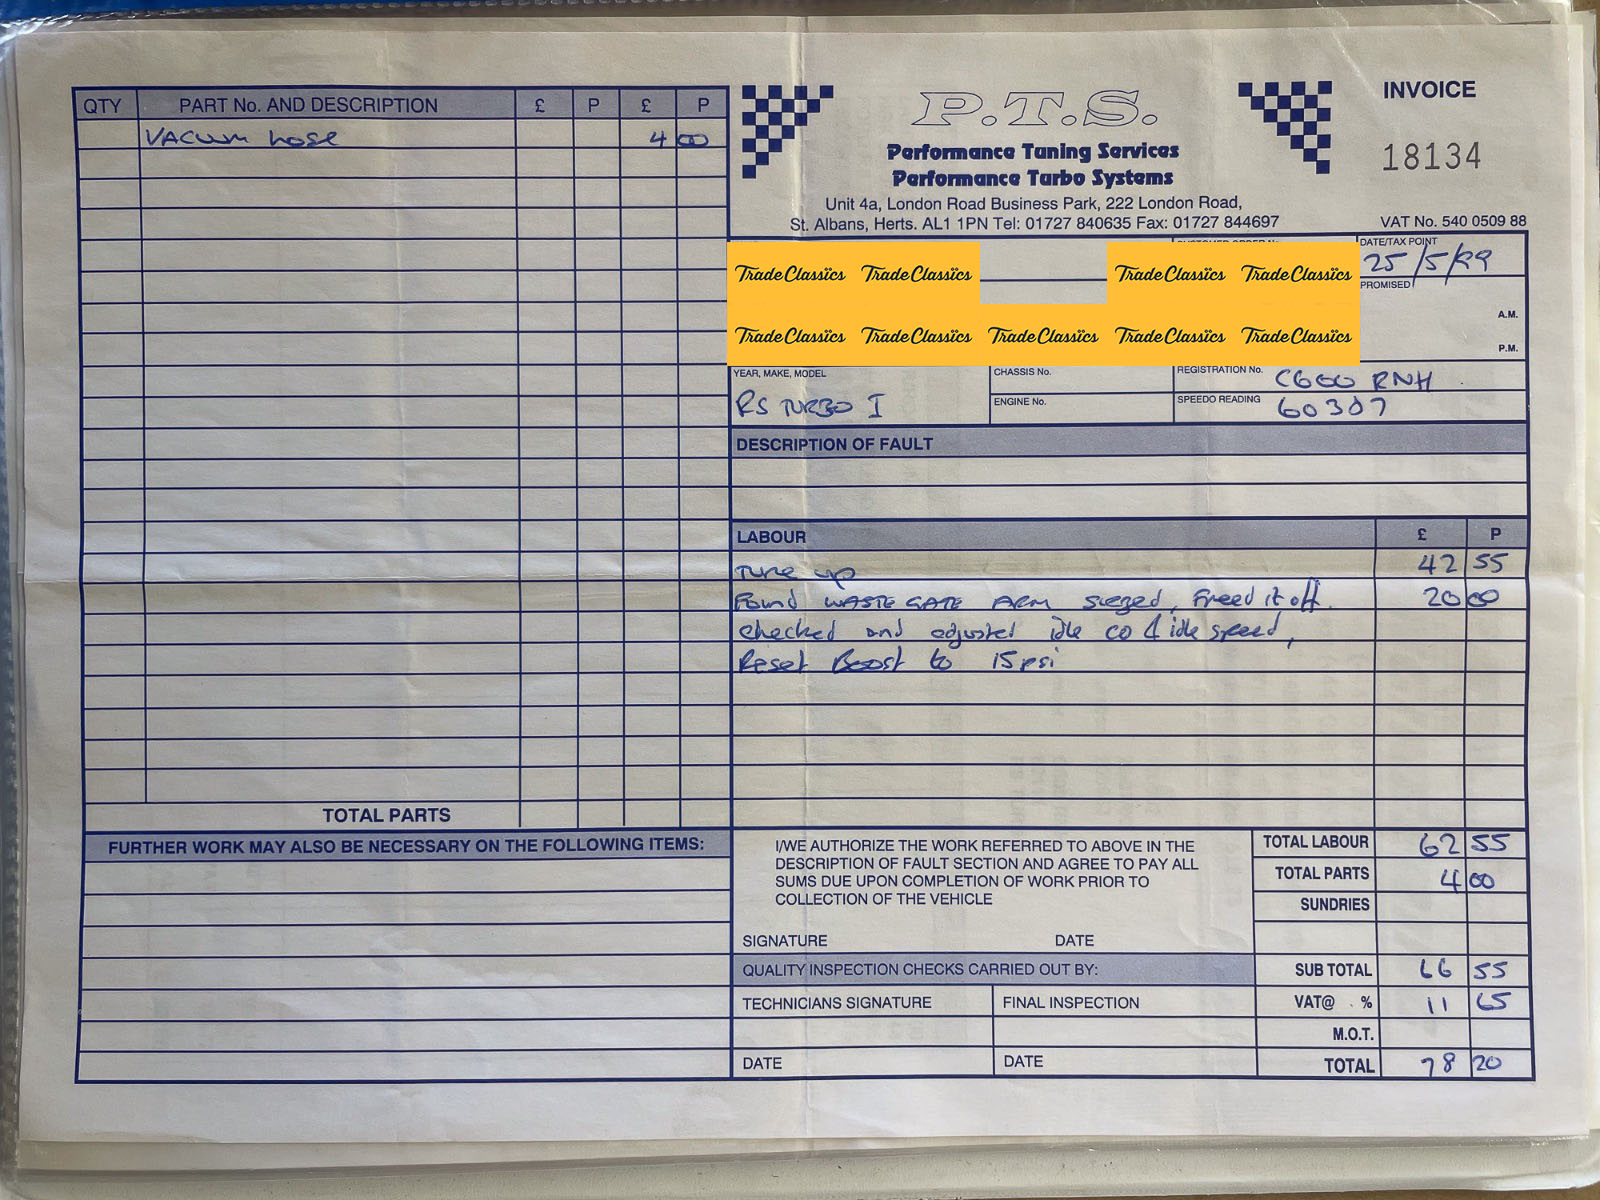 QTY PART No. AND DESCRIPTION £ P £ P
VACUUM hose 4 00
TOTAL PARTS
FURTHER WORK MAY ALSO BE NECESSARY ON THE FOLLOWING ITEMS:
P.T.S.
Performance Tuning Services
Performance Turbo Systems
Unit 4a, London Road Business Park, 222 London Road,
St. Albans, Herts. AL1 1PN Tel: 01727 840635 Fax: 01727 844697
INVOICE
18134
VAT No. 540 0509 88
Trade Classics Trade Classics Trade Classics Trade Classics
Trade Classics Trade Classics Trade Classics Trade Classics Trade Classics
DATE/TAX POINT
25/5/99
PROMISED
A.M.
P.M.
YEAR, MAKE, MODEL
RS TURBO I
CHASSIS No.
ENGINE No.
REGISTRATION No. C600 RNH
SPEEDO READING 60307
DESCRIPTION OF FAULT
LABOUR £ P
Tune up 42 55
Found WASTE GATE ARM siezed, Freed it off. 20 00
checked and adjusted idle co & idle speed,
Reset Boost to 15psi
I/WE AUTHORIZE THE WORK REFERRED TO ABOVE IN THE
DESCRIPTION OF FAULT SECTION AND AGREE TO PAY ALL
SUMS DUE UPON COMPLETION OF WORK PRIOR TO
COLLECTION OF THE VEHICLE
SIGNATURE DATE
QUALITY INSPECTION CHECKS CARRIED OUT BY:
TECHNICIANS SIGNATURE FINAL INSPECTION
DATE DATE
TOTAL LABOUR 62 55
TOTAL PARTS 4 00
SUNDRIES
SUB TOTAL 66 55
VAT@ . % 11 65
M.O.T.
TOTAL 78 20